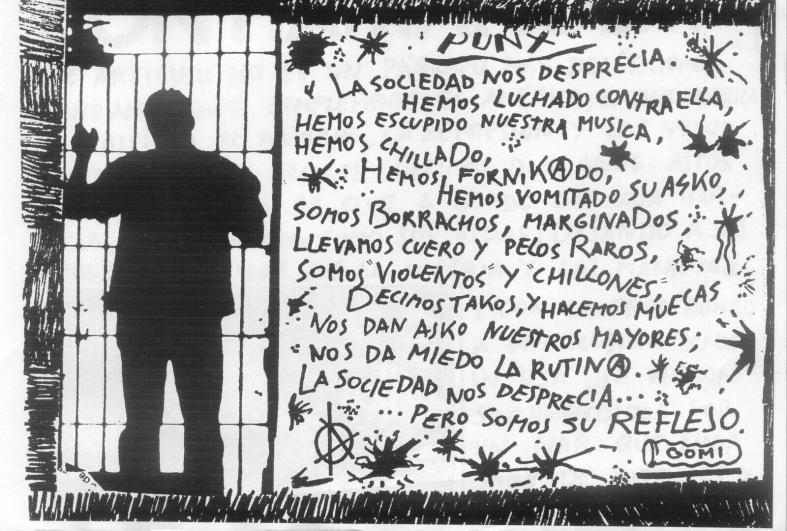 PUNX
LA SOCIEDAD NOS DESPRECIA.
HEMOS LUCHADO CONTRA ELLA,
HEMOS ESCUPIDO NUESTRA MUSICA,
HEMOS CHILLADO,
HEMOS, FORNIKⒶDO,
HEMOS VOMITADO SU ASKO,
SOMOS BORRACHOS, MARGINADOS,
LLEVAMOS CUERO Y PELOS RAROS,
SOMOS "VIOLENTOS" Y "CHILLONES",
DECIMOS TAKOS, Y HACEMOS MUECAS
NOS DAN ASKO NUESTROS MAYORES;
NOS DA MIEDO LA RUTINⒶ.
LA SOCIEDAD NOS DESPRECIA...
... PERO SOMOS SU REFLEJO.
GOMI